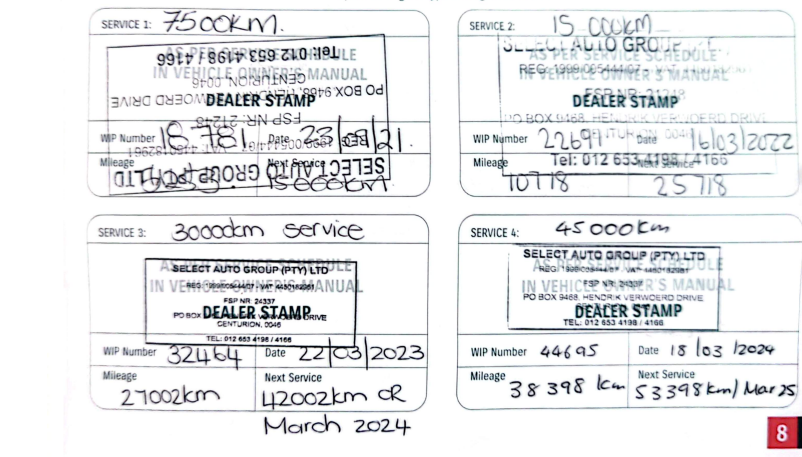 SERVICE 1: 7500KM.
AS PER SERVICE SCHEDULE
IN VEHICLE OWNER'S MANUAL
DEALER STAMP
SELECT AUTO GROUP (PTY) LTD
FSP NR: 21248
PO BOX 9468, HENDRIK VERWOERD DRIVE
CENTURION, 0046
Tel: 012 653 4198 / 4166
WIP Number 18781 Date 23/ /21
Mileage Next Service
15000km
SERVICE 2: 15 000KM
SELECT AUTO GROUP
AS PER SERVICE SCHEDULE
IN VEHICLE OWNER'S MANUAL
FSP NR: 21248
DEALER STAMP
PO BOX 9468, HENDRIK VERWOERD DRIVE
CENTURION, 0046
WIP Number 22691 Date 16/03/2022
Tel: 012 653 4198 / 4166
Mileage Next Service
10718 25718
SERVICE 3: 30000km service
AS PER SERVICE SCHEDULE
SELECT AUTO GROUP (PTY) LTD
IN VEHICLE OWNER'S MANUAL
REG: 1998/005444/07 - VAT: 4480182981
FSP NR: 24337
DEALER STAMP
PO BOX VERWOERD DRIVE
CENTURION, 0046
TEL: 012 653 4198 / 4166
WIP Number 32464 Date 22/03/2023
Mileage Next Service
27002km 42002km OR
March 2024
SERVICE 4: 45 000km
SELECT AUTO GROUP (PTY) LTD
AS PER SERVICE SCHEDULE
REG: 1998/005444/07 - VAT: 4480182981
IN VEHICLE OWNER'S MANUAL
FSP NR: 24337
PO BOX 9468, HENDRIK VERWOERD DRIVE
DEALER STAMP
TEL: 012 653 4198 / 4166
WIP Number 44695 Date 18/03/2024
Mileage Next Service
38 398 km 53398km/Mar25
8